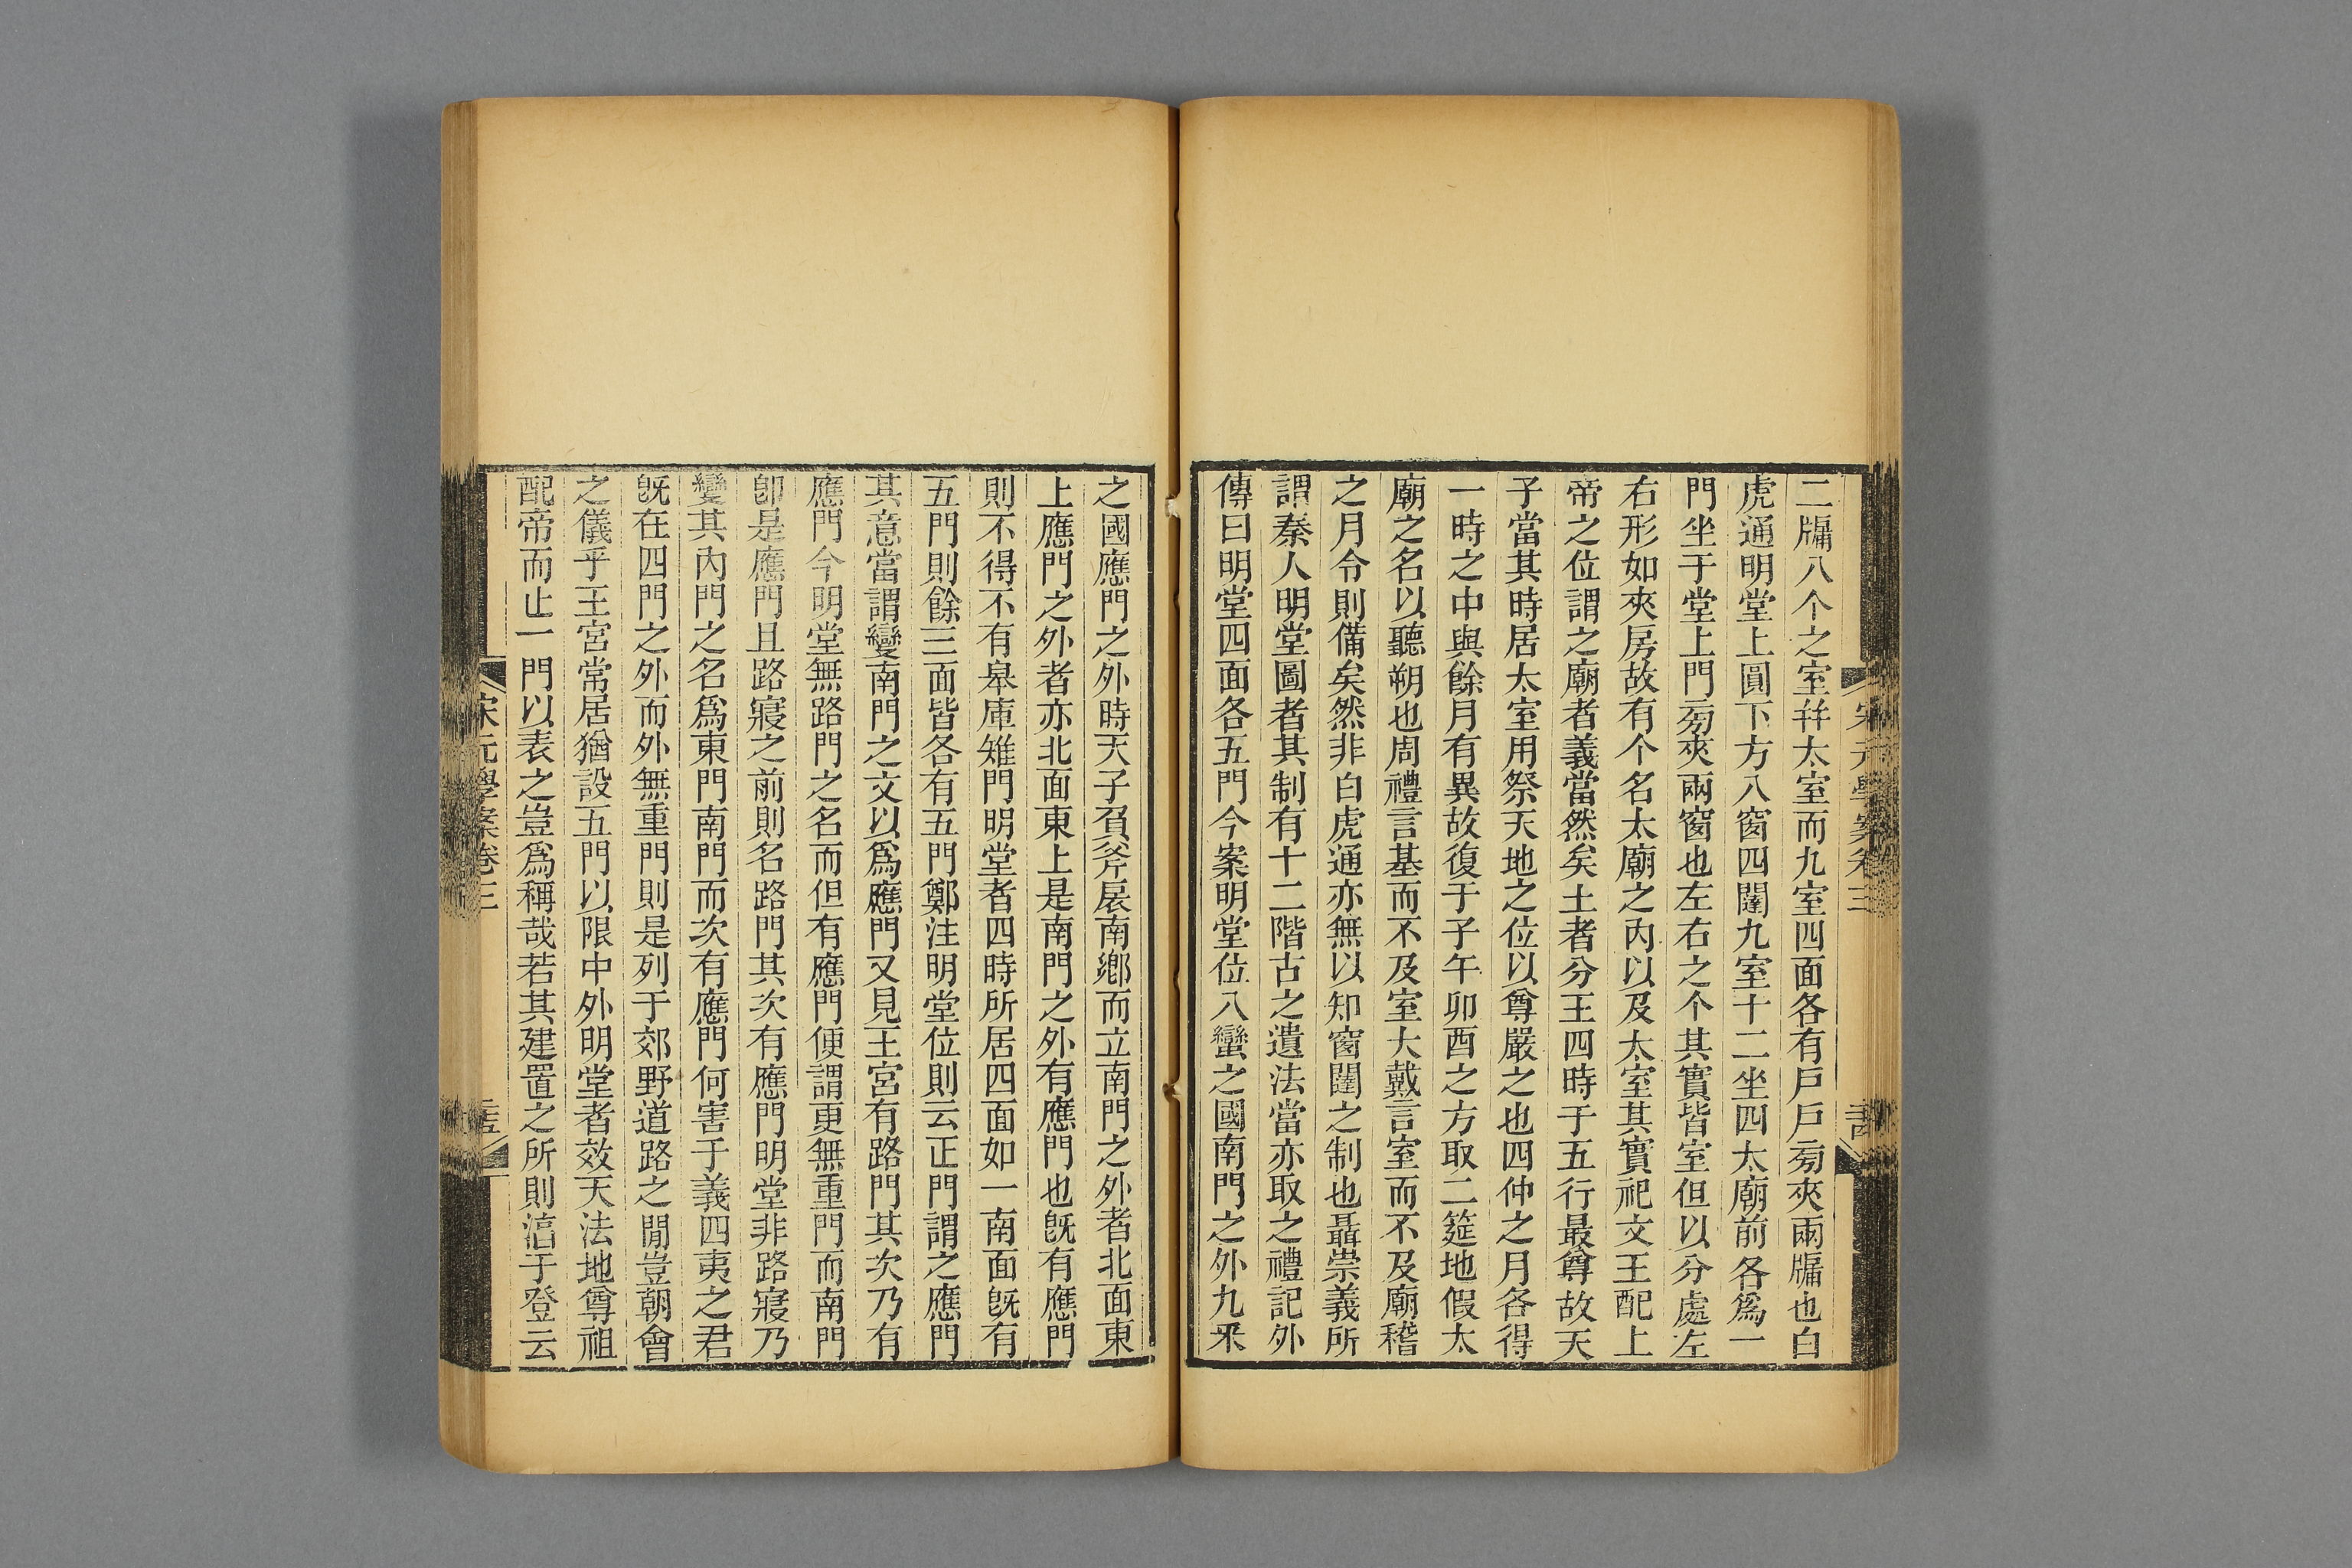 二牖八个之室幷太室而九室四面各有戶戶㫄夾兩牖也白
虎通明堂上圓下方八窗四闥九室十二坐四太廟前各爲一
門坐于堂上門㫄夾兩窗也左右之个其實皆室但以分處左
右形如夾房故有个名太廟之內以及太室其實祀文王配上
帝之位謂之廟者義當然矣土者分王四時于五行最尊故天
子當其時居太室用祭天地之位以尊嚴之也四仲之月各得
一時之中與餘月有異故復于子午卯酉之方取二筵地假太
廟之名以聽朔也周禮言基而不及室大戴言室而不及廟稽
之月令則備矣然非白虎通亦無以知窗闥之制也聶崇義所
謂秦人明堂圖者其制有十二階古之遺法當亦取之禮記外
傳曰明堂四面各五門今案明堂位八蠻之國南門之外九采
之國應門之外時天子負斧扆南鄉而立南門之外者北面東
上應門之外者亦北面東上是南門之外有應門也旣有應門
則不得不有皋庫雉門明堂者四時所居四面如一南面旣有
五門則餘三面皆各有五門鄭注明堂位則云正門謂之應門
其意當謂變南門之文以爲應門又見王宮有路門其次乃有
應門今明堂無路門之名而但有應門便謂更無重門而南門
卽是應門且路寢之前則名路門其次有應門明堂非路寢乃
變其內門之名爲東門南門而次有應門何害于義四夷之君
旣在四門之外而外無重門則是列于郊野道路之閒豈朝會
之儀乎王宮常居猶設五門以限中外明堂者效天法地尊祖
配帝而止一門以表之豈爲稱哉若其建置之所則湻于登云
宋元學案卷三
宋元學案卷三